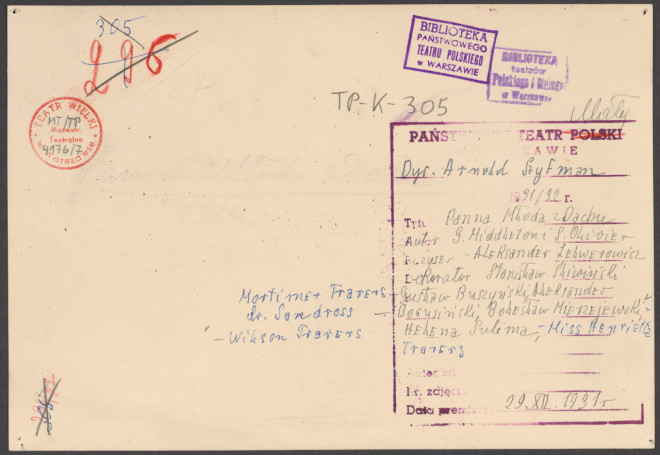 305
296
BIBLIOTEKA
PAŃSTWOWEGO
TEATRU POLSKIEGO
w WARSZAWIE
BIBLIOTEKA
teatrów
Polskiego i
w Warszawie
TP-K-305
TEATR WIELKI
MT/TP
Muzeum
Teatralne
4176/7
w Warszawie
Mały
PAŃSTW TEATR POLSKI
ZAWIE
Dyr. Arnold Szyfman
1931/32 r.
Tytuł Panna Młoda z Dachu
Autor G. Middleton i S. Olivier
Reżyser - Aleksander Zelwerowicz
Dekorator Stanisław Śliwiński
Mortimer Travers - Gustaw Buszyński, Aleksander
Dr. Sandross - Bogusiński Bolesław Mierzejewski -
- Wilson Travers Helena Sulima, - Miss Henrietta
Travers
Autor
Nr. zdjęc
Data premiery 29.XII.1931 r